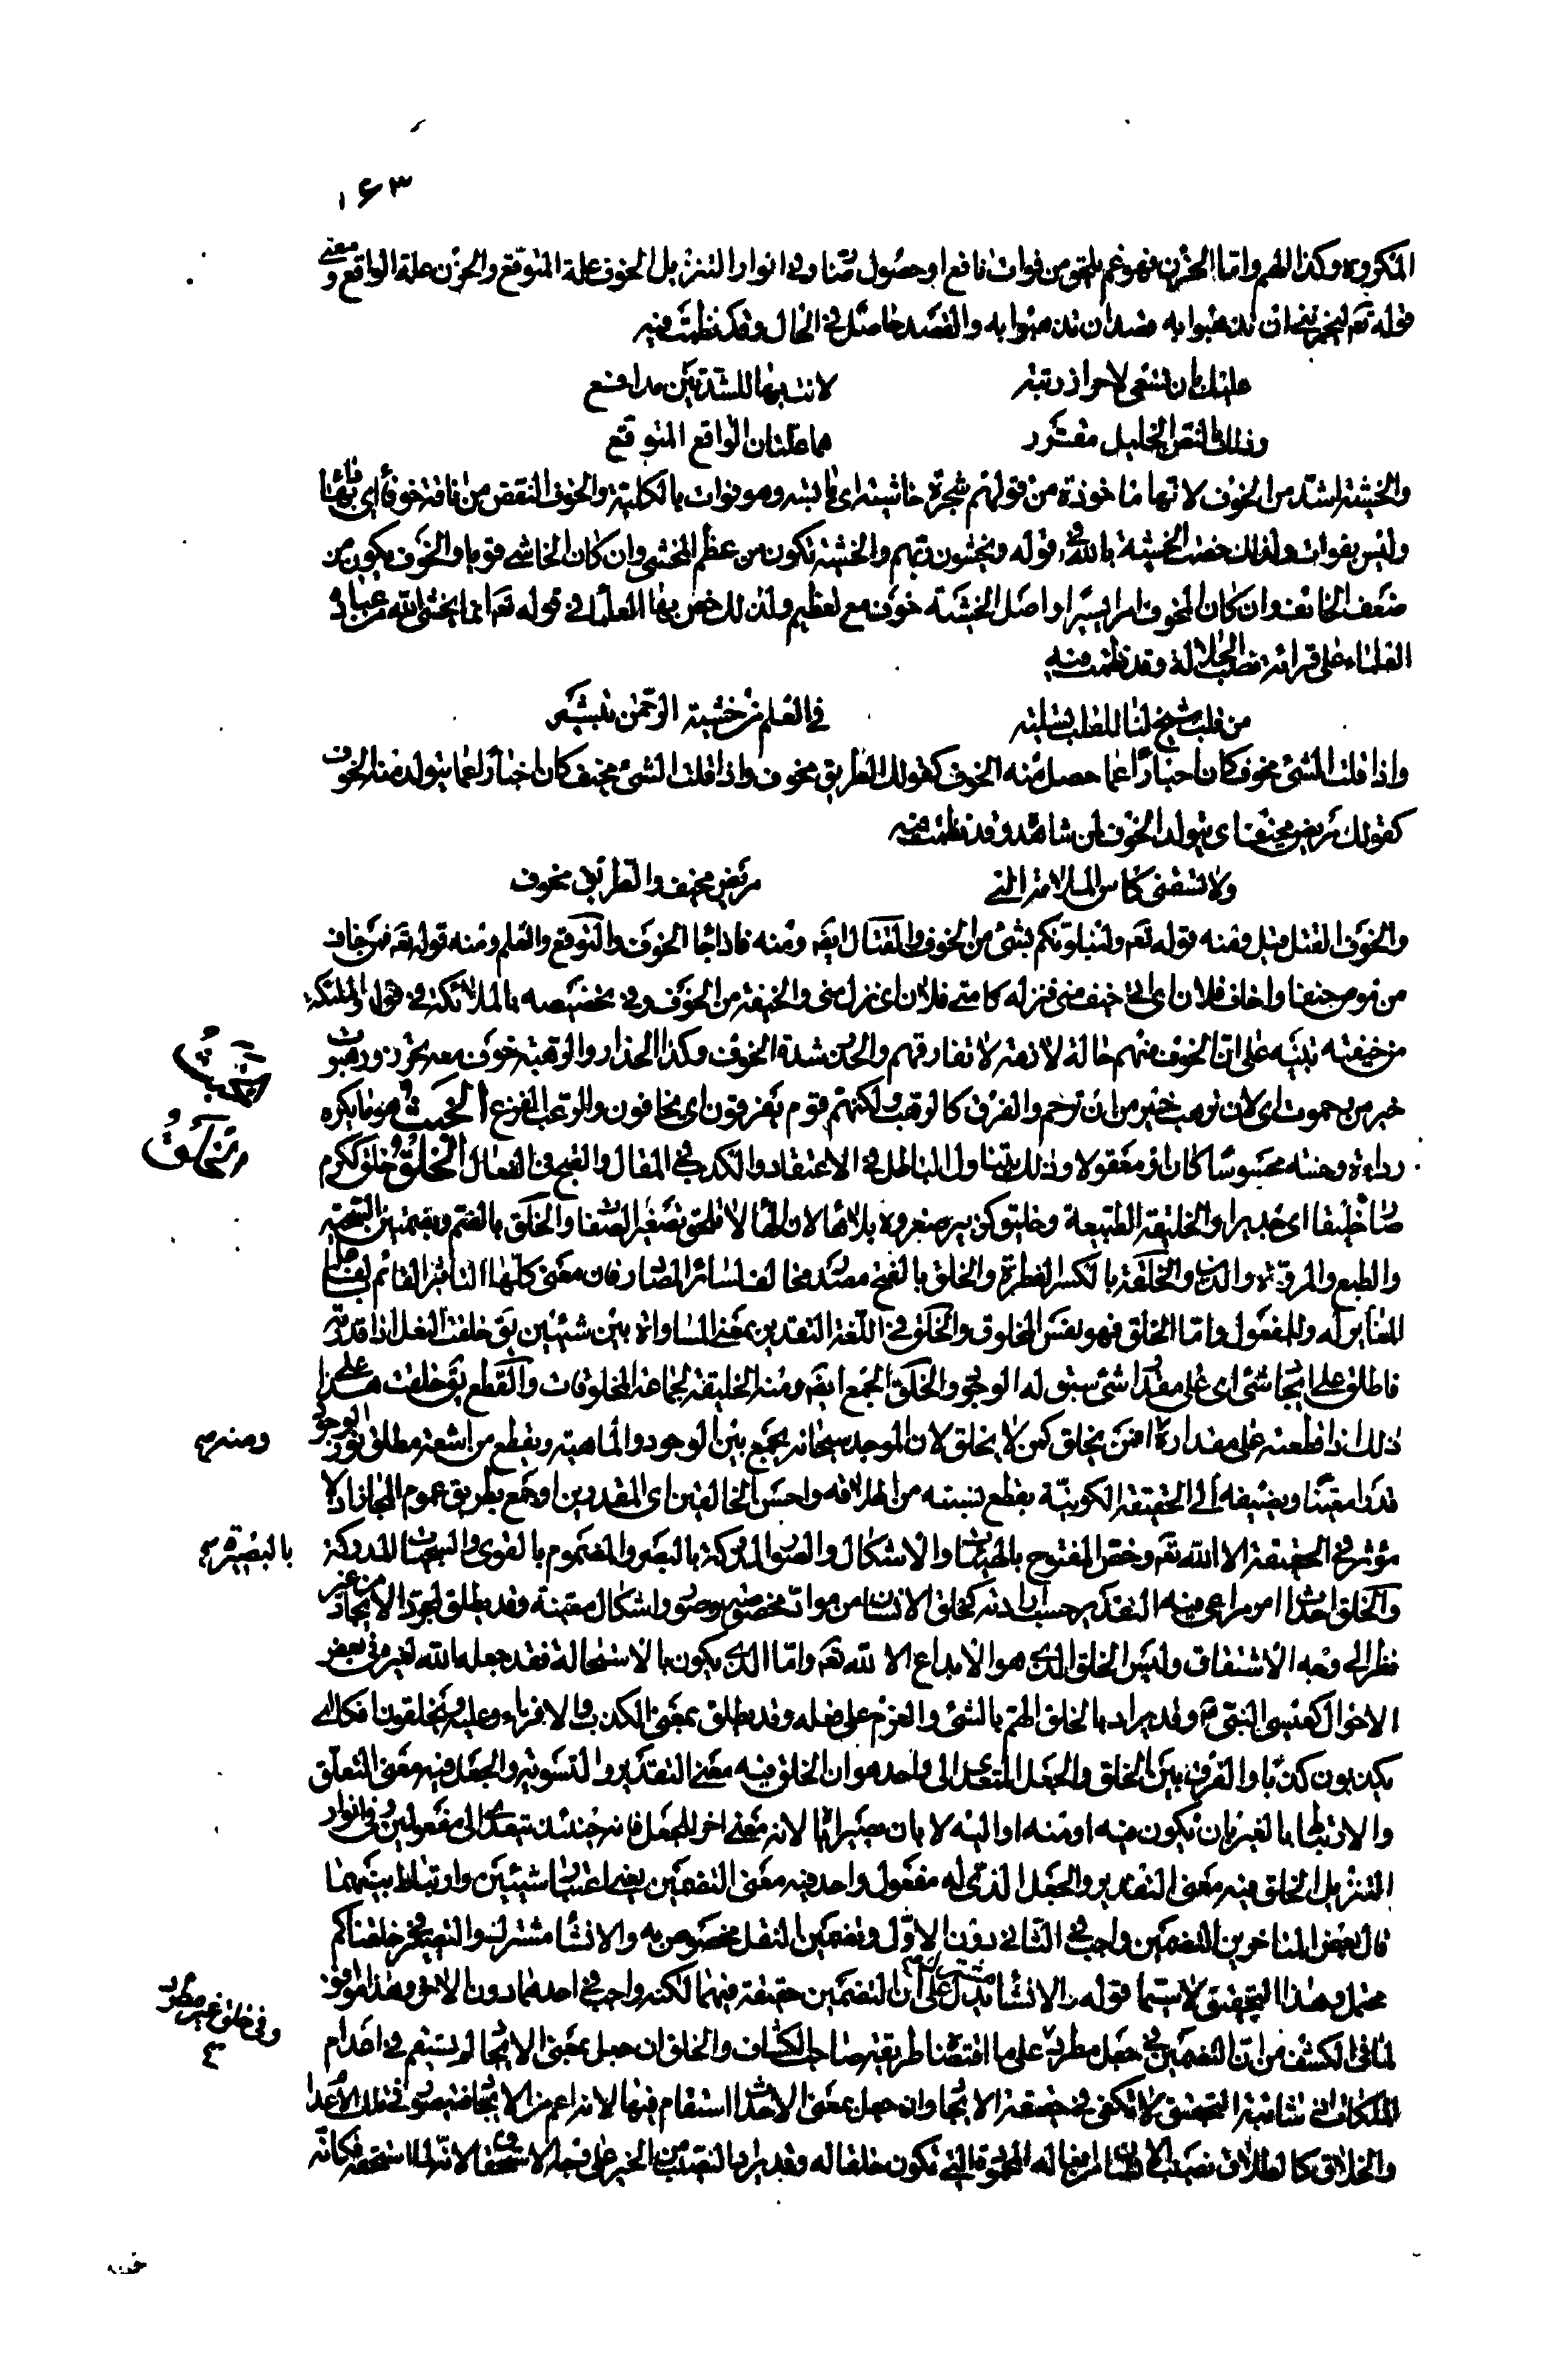 ١٦٣
المكروه وكذا الهم واما الحزن فهو غم يلحق من فوات نافع او حصول ضار وفى انوار التنزيل الخوف علة المتوقع والحزن علة الواقع ومعنى
قوله تعم ليحزننى ان تذهبوا به قصد ان تذهبوا به والقصد حاصل فى الحال وقد نظمت فيه
عليك بان تسعى لاحراز رتبة
لا تنتبهما للشدتين مدافع
وذلك النص الجليل مقرر
هما علتان الواقع المتوقع
والخشية اشد من الخوف لانها ماخوذة من قولهم شجرة خاشية اى يابسة وهو فوات بالكلية والخوف النقص من ناقة خوفاء اى بها داء
وليس بفوات ولذلك خصت الخشية بالله فى قوله ويخشون ربهم والخشية تكون من عظم المخشى وان كان الخاشى قويا والخوف يكون من
ضعف الخائف وان كان المخوف امرا يسيرا واصل الخشية خوف مع تعظيم ولذلك خص بها العلماء فى قوله تعم انما يخشى الله من عباده
العلماء على قرائة نصب الجلالة وقد نظمت فيه
من قلب شيخ لنا للقلب تسلية
فى العلم من خشية الرحمن تبشير
واذا قلت الشئ مخوف كان اخبارا عما حصل منه الخوف كقولك الطريق مخوف واذا قلت الشئ مخيف كان اخبارا عما يتولد منه الخوف
كقولك مريض مخيف اى يتولد الخوف لمن شاهده وقد نظمت فيه
ولا تسقنى كاس الملامة اننى
مريض مخيف والطريق مخوف
والخوف القتل قيل ومنه قوله تعم ولنبلونكم بشئ من الخوف والقتال ايضا ومنه فاذا جاء الخوف والتوقع والعلم ومنه قوله تعم فمن خاف
من موص جنفا واخاف فلان اى اتى خيف منى فنزله كامنى فلان اى نزل منى والخيفة من الخوف وفى تخصيصه بالملائكة فى قوله والملئكة
من خيفته تنبيه على ان الخوف منهم حالة لازمة لا تفارقهم والحذر شدة الخوف وكذا الحذار والرهبة خوف معه تحرز ورهبوت
خير من رحموت اى لان ترهب خير من ان ترحم والفرق كالرهب ولكنهم قوم يفرقون اى يخافون والرعب الفزع الخبث هو ما يكره
رداءة وخسة محسوسا كان او معقولا وذلك يتناول الباطل فى الاعتقاد والكذب فى المقال والقبح فى الفعال الخلق خلق ككرم
صار خليقا اى جديرا والخليقة الطبيعة وخليق كزبير صغروه بلا هاء لان الهاء لا تلحق تصغير الصفات والخلق بالضم وبضمتين السجية
والطبع والمروءة والدين والخلقة بالكسر الفطرة والخلق بالفتح مصدر مخالف لسائر المصادر فان معنى كلها التاثير القائم بفاعل
المغاير له وللمفعول واما الخلق فهو نفس المخلوق والخلق فى اللغة التقدير بمعنى المساواة بين شيئين يق خلقت النعل اذا قدرته
فاطلق على ايجاد شئ اى على مقدار شئ سبق له الوجود والخلق الجمع ايضا ومنه الخليقة لجماعة المخلوقات والقطع يق خلقت هذا على
ذلك اذا قطعته على مقداره افمن يخلق كمن لا يخلق لان الموجد سبحانه يجمع بين الوجود والماهية ويقطع من اشعة مطلق نور الوجود
قدرا معينا ويضيفه الى الحقيقة الكونية بقطع نسبته من اطلاقه واحسن الخالقين اى المقدرين او جمع بطريق عموم المجاز اذ لا
مؤثر فى الحقيقة الا الله تعم وخص المفتوح بالهيئات والاشكال والصور المدركة بالبصر والمضموم بالقوى والسجيات المدركة
والخلق احداث امر مراعى فيه التقدير حسب ارادته كخلق الانسان من مواد مخصوصة وصور واشكال معينة وقد يطلق لمجرد الايجاد من غير
نظر الى وجه الاشتقاق وليس الخلق الذى هو الابداع الا لله تعم واما الذى يكون بالاستحالة فقد جعله الله لغيره فى بعض
الاحوال كعيسى النبى وقد يراد بالخلق الهم بالشئ والعزم على فعله وقد يطلق بمعنى الكذب والافتراء وعليه وتخلقون افكا اى
يكذبون كذبا والفرق بين الخلق والجعل المتعدى الى واحد هو ان الخلق فيه معنى التقدير والتسوية والجعل فيه معنى التعلق
والارتباط بالغير بان يكون فيه او منه او اليه لا بان يصير اياه لانه معنى اخر للجعل فانه حينئذ يتعدى الى مفعولين وفى انوار
التنزيل الخلق فيه معنى التقدير والجعل الذى له مفعول واحد فيه معنى التضمين يعنى اعتبار شيئين وارتباط بينهما
قال بعض المتاخرين التضمين واجب فى الثانى دون الاول وتضمين النقل مخصوص به والانشاء مشترك والتصيير خلقناكم
محتمل وهذا التحقيق لا سيما قوله والانشاء مشترك يدل على ان التضمين حقيقة فيهما لكنه واجب فى احدهما دون الاخر وهذا موافق
لما فى الكشف من ان التضمين فى جعل مطرد على ما اقتضاه طريقة صاحب الكشاف والخلق ان حمل بمعنى الايجاد لم يستقم فى اعدام
الملكات اذ شائبة التحقق لا تكفى فى حقيقة الايجاد وان حمل بمعنى الاحداث استقام فيها لانه اعم من الايجاد فيتصور فى تلك الاعدام
والخلاق كالطلاق نصيب الانسان من افعاله المحمودة التى تكون خلقا له وقد يراد به النصيب من الخير على وجه الاستحقاق لانه لما استحقه فكانه
الخبث
الخلق
ومنه
بالبصيرة
وفى خلق غير مطرد